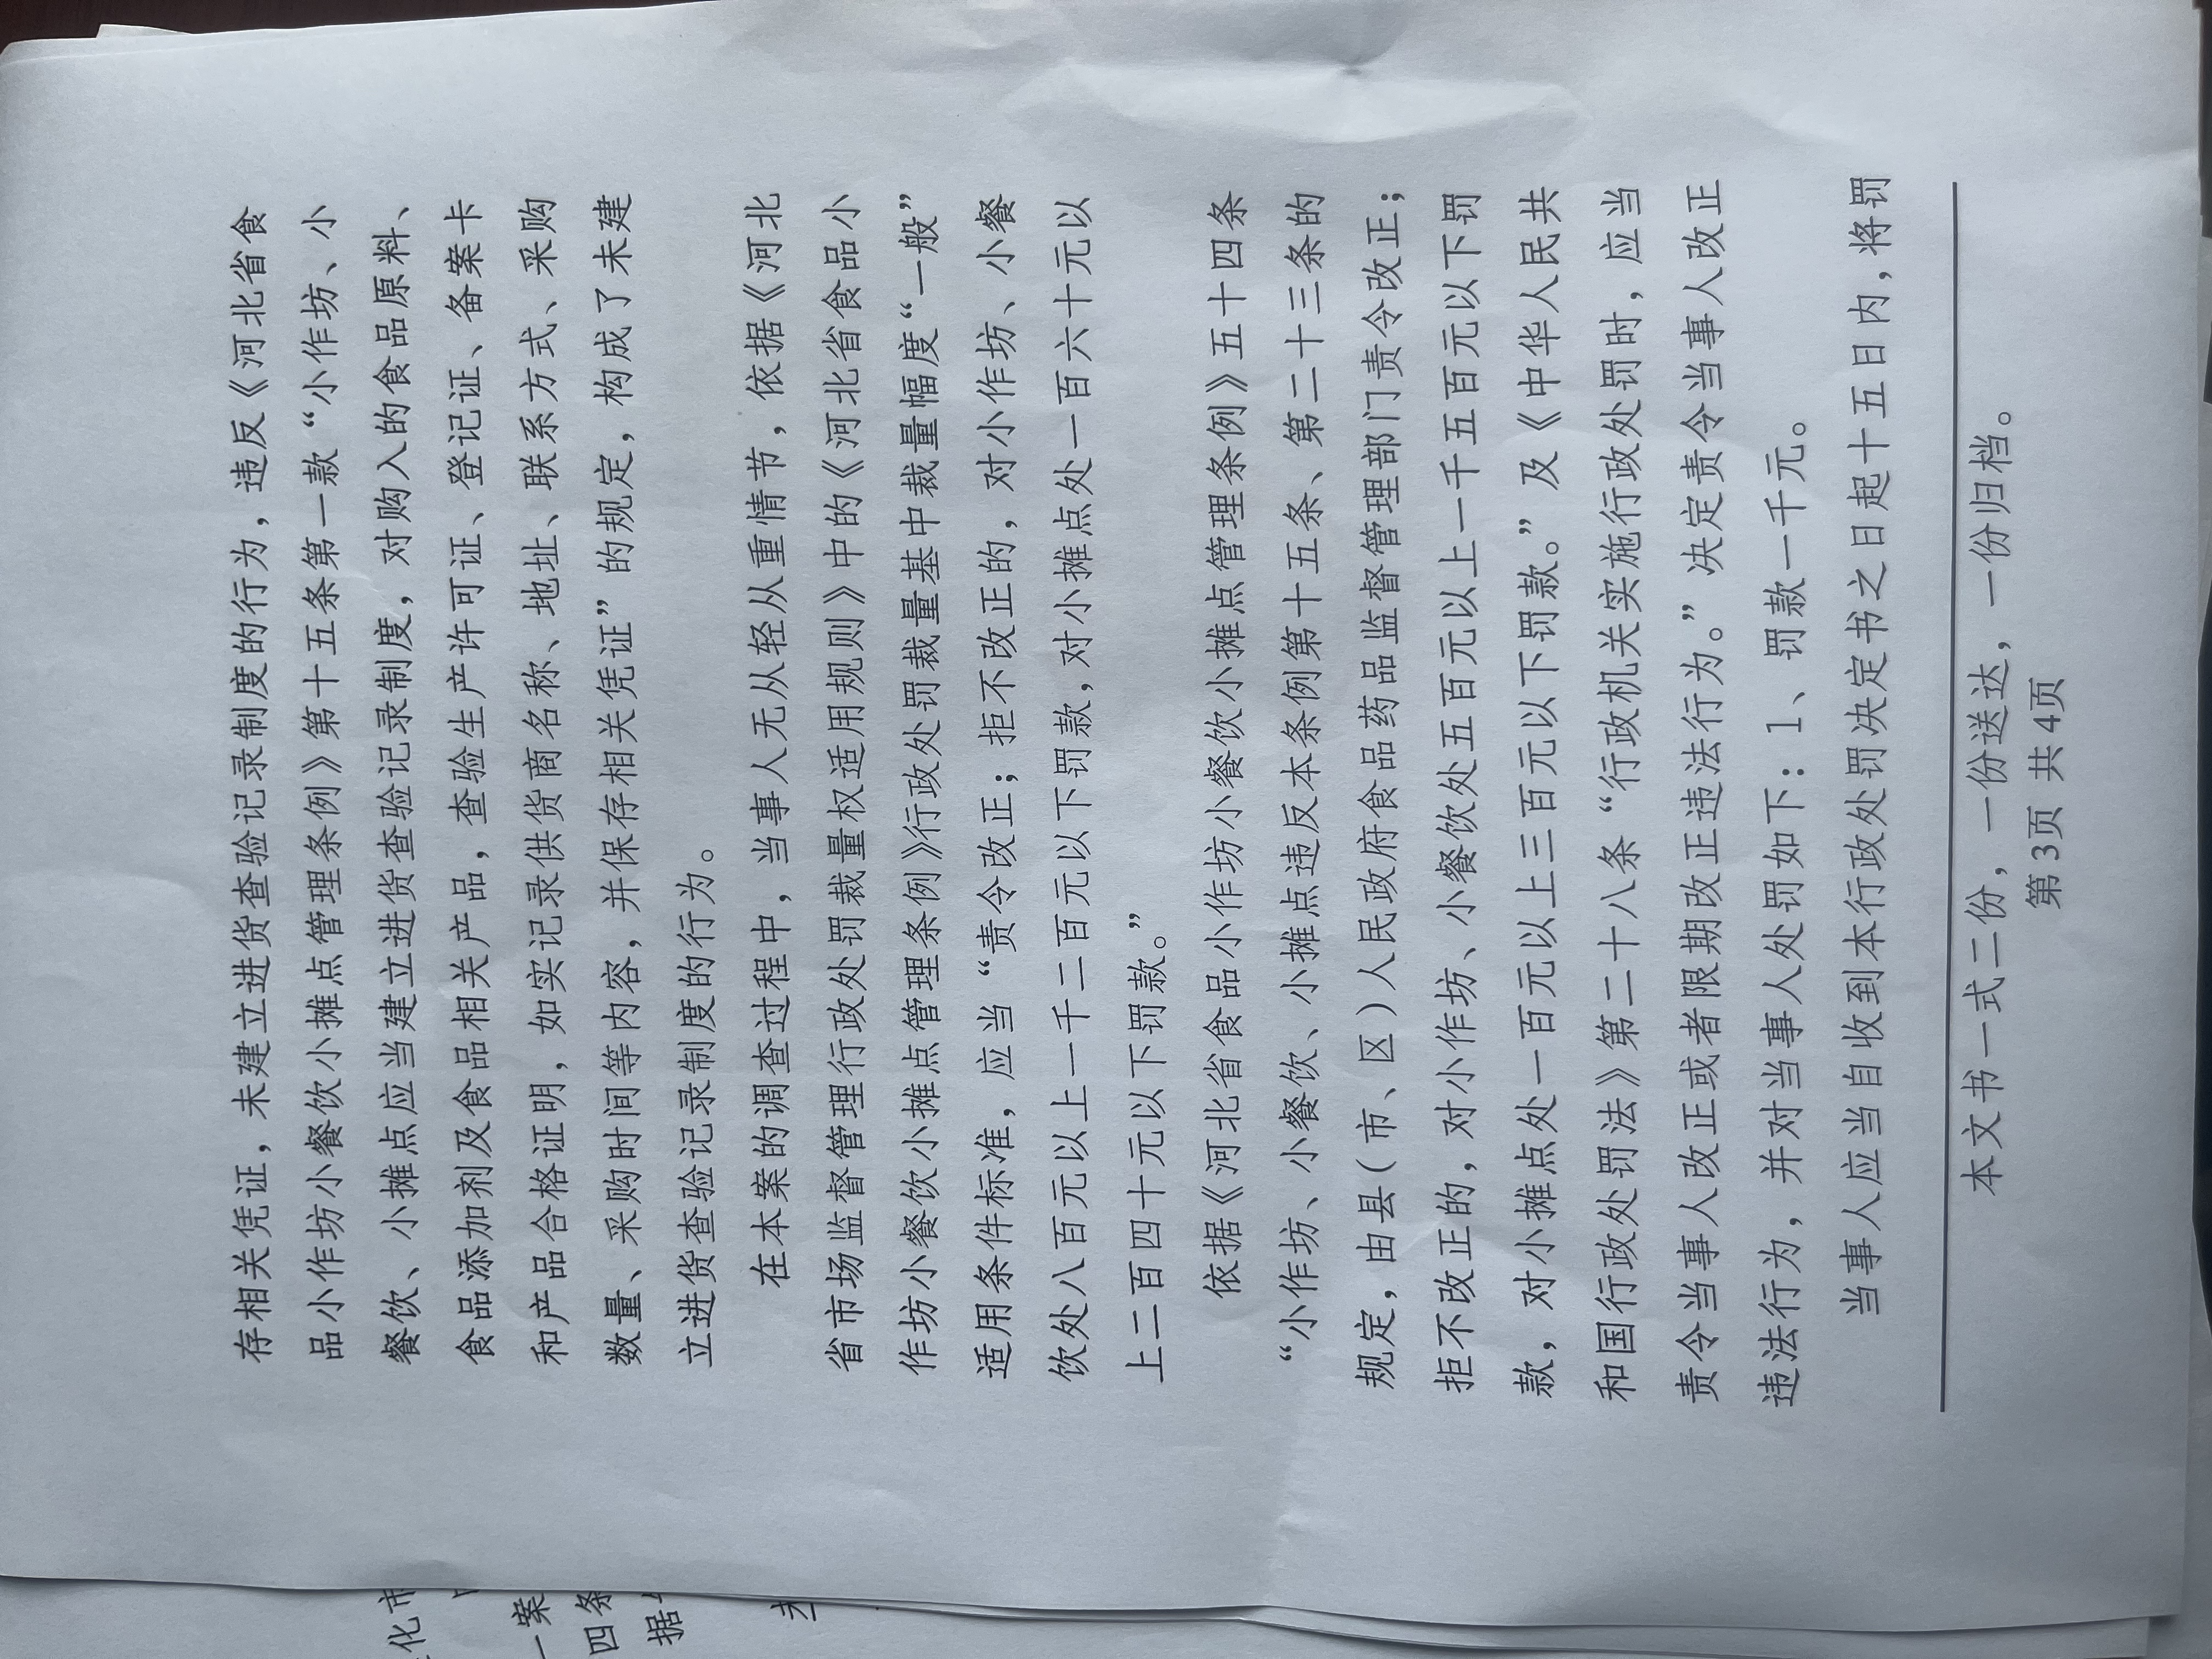 存相关凭证，未建立进货查验记录制度的行为，违反《河北省食
品小作坊小餐饮小摊点管理条例》第十五条第一款“小作坊、小
餐饮、小摊点应当建立进货查验记录制度，对购入的食品原料、
食品添加剂及食品相关产品，查验生产许可证、登记证、备案卡
和产品合格证明，如实记录供货商名称、地址、联系方式、采购
数量、采购时间等内容，并保存相关凭证”的规定，构成了未建
立进货查验记录制度的行为。
在本案的调查过程中，当事人无从轻从重情节，依据《河北
省市场监督管理行政处罚裁量权适用规则》中的《河北省食品小
作坊小餐饮小摊点管理条例》行政处罚裁量基中裁量幅度“一般”
适用条件标准，应当“责令改正；拒不改正的，对小作坊、小餐
饮处八百元以上一千二百元以下罚款，对小摊点处一百六十元以
上二百四十元以下罚款。”
依据《河北省食品小作坊小餐饮小摊点管理条例》五十四条
“小作坊、小餐饮、小摊点违反本条例第十五条、第二十三条的
规定，由县（市、区）人民政府食品药品监督管理部门责令改正；
拒不改正的，对小作坊、小餐饮处五百元以上一千五百元以下罚
款，对小摊点处一百元以上三百元以下罚款。”及《中华人民共
和国行政处罚法》第二十八条“行政机关实施行政处罚时，应当
责令当事人改正或者限期改正违法行为。”决定责令当事人改正
违法行为，并对当事人处罚如下：1、罚款一千元。
当事人应当自收到本行政处罚决定书之日起十五日内，将罚
本文书一式二份，一份送达，一份归档。
第3页 共4页
化市
一案
四条
据